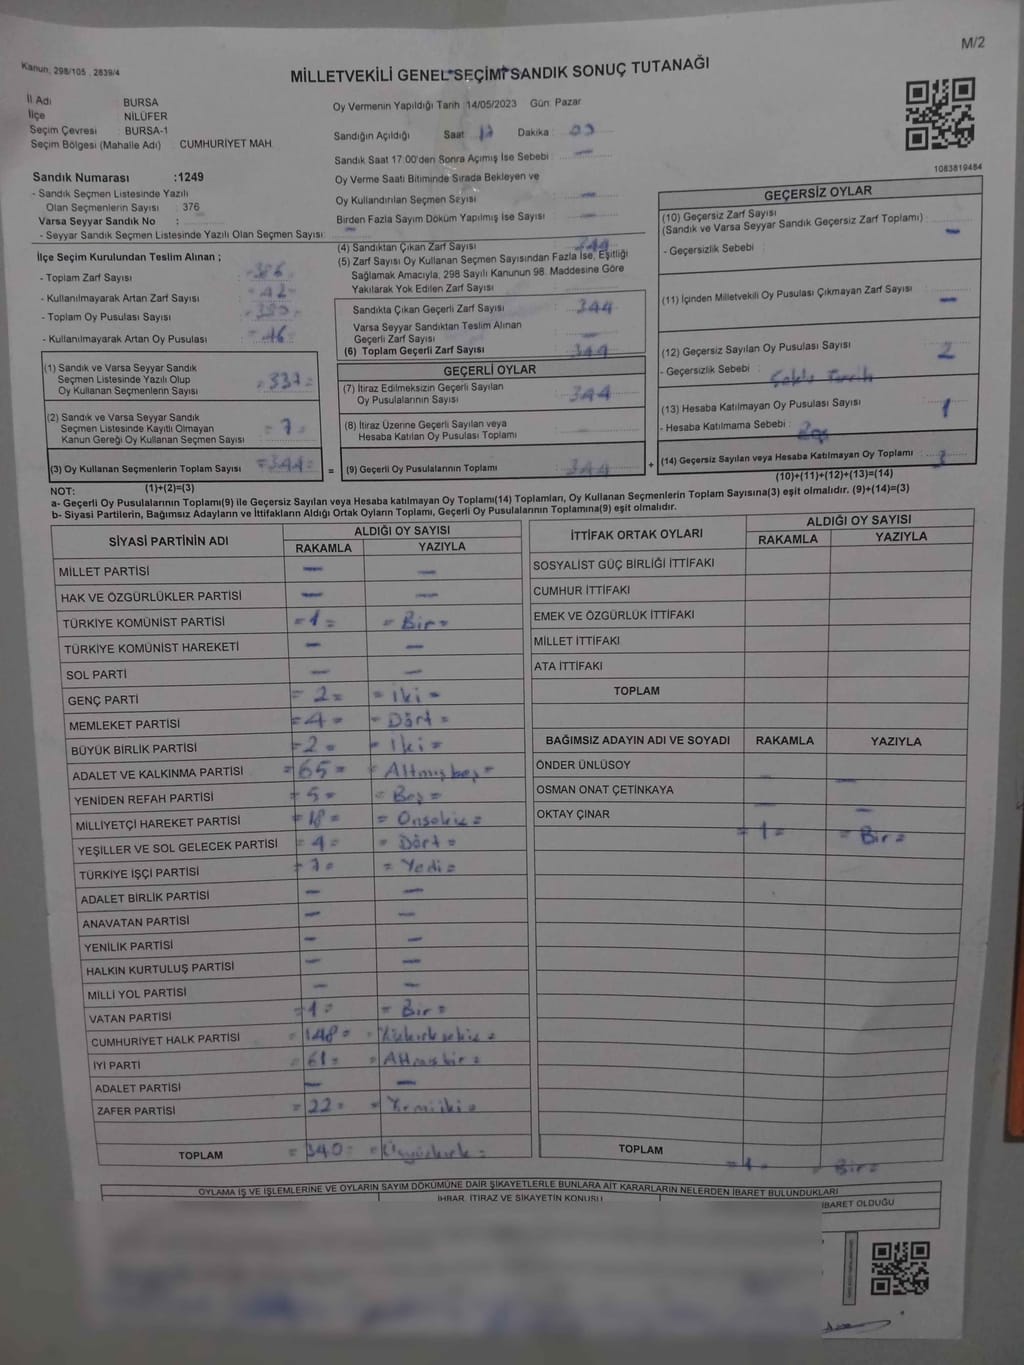 M/2
Kanun: 298/105 , 2839/4
MİLLETVEKİLİ GENEL SEÇİMİ SANDIK SONUÇ TUTANAĞI
İl Adı BURSA
İlçe NİLÜFER
Seçim Çevresi : BURSA-1
Seçim Bölgesi (Mahalle Adı) CUMHURİYET MAH.
Sandık Numarası :1249
- Sandık Seçmen Listesinde Yazılı
Olan Seçmenlerin Sayısı : 376
Varsa Seyyar Sandık No :
- Seyyar Sandık Seçmen Listesinde Yazılı Olan Seçmen Sayısı: —
Oy Vermenin Yapıldığı Tarih :14/05/2023 Gün: Pazar
Sandığın Açıldığı Saat : 17 Dakika :
Sandık Saat 17:00'den Sonra Açımış İse Sebebi : —
Oy Verme Saati Bitiminde Sırada Bekleyen ve
Oy Kullandırılan Seçmen Sayısı : —
Birden Fazla Sayım Döküm Yapılmış İse Sayısı : —
1083819484
İlçe Seçim Kurulundan Teslim Alınan ;
- Toplam Zarf Sayısı :
- Kullanılmayarak Artan Zarf Sayısı : =42=
- Toplam Oy Pusulası Sayısı :
- Kullanılmayarak Artan Oy Pusulası : =46=
(1) Sandık ve Varsa Seyyar Sandık
Seçmen Listesinde Yazılı Olup
Oy Kullanan Seçmenlerin Sayısı : =337=
(2) Sandık ve Varsa Seyyar Sandık
Seçmen Listesinde Kayıtlı Olmayan
Kanun Gereği Oy Kullanan Seçmen Sayısı : =7=
(3) Oy Kullanan Seçmenlerin Toplam Sayısı : =344=
(1)+(2)=(3)
(4) Sandıktan Çıkan Zarf Sayısı : 344
(5) Zarf Sayısı Oy Kullanan Seçmen Sayısından Fazla İse, Eşitliği
Sağlamak Amacıyla, 298 Sayılı Kanunun 98. Maddesine Göre
Yakılarak Yok Edilen Zarf Sayısı :
Sandıkta Çıkan Geçerli Zarf Sayısı : 344
Varsa Seyyar Sandıktan Teslim Alınan
Geçerli Zarf Sayısı : —
(6) Toplam Geçerli Zarf Sayısı : 344
GEÇERLİ OYLAR
(7) İtiraz Edilmeksizin Geçerli Sayılan
Oy Pusulalarının Sayısı : 344
(8) İtiraz Üzerine Geçerli Sayılan veya
Hesaba Katılan Oy Pusulası Toplamı :
= (9) Geçerli Oy Pusulalarının Toplamı : 344
GEÇERSİZ OYLAR
(10) Geçersiz Zarf Sayısı
(Sandık ve Varsa Seyyar Sandık Geçersiz Zarf Toplamı) : —
- Geçersizlik Sebebi :
(11) İçinden Milletvekili Oy Pusulası Çıkmayan Zarf Sayısı : —
(12) Geçersiz Sayılan Oy Pusulası Sayısı : 2
- Geçersizlik Sebebi :
(13) Hesaba Katılmayan Oy Pusulası Sayısı : 1
- Hesaba Katılmama Sebebi : Boş
+ (14) Geçersiz Sayılan veya Hesaba Katılmayan Oy Toplamı : 3
(10)+(11)+(12)+(13)=(14)
NOT:
a- Geçerli Oy Pusulalarının Toplamı(9) ile Geçersiz Sayılan veya Hesaba katılmayan Oy Toplamı(14) Toplamları, Oy Kullanan Seçmenlerin Toplam Sayısına(3) eşit olmalıdır. (9)+(14)=(3)
b- Siyasi Partilerin, Bağımsız Adayların ve İttifakların Aldığı Ortak Oyların Toplamı, Geçerli Oy Pusulalarının Toplamına(9) eşit olmalıdır.
SİYASİ PARTİNİN ADI ALDIĞI OY SAYISI
RAKAMLA YAZIYLA
MİLLET PARTİSİ — —
HAK VE ÖZGÜRLÜKLER PARTİSİ — —
TÜRKİYE KOMÜNİST PARTİSİ =1= =Bir=
TÜRKİYE KOMÜNİST HAREKETİ — —
SOL PARTİ — —
GENÇ PARTİ =2= =İki=
MEMLEKET PARTİSİ =4= =Dört=
BÜYÜK BİRLİK PARTİSİ =2= =İki=
ADALET VE KALKINMA PARTİSİ =65= =Altmışbeş=
YENİDEN REFAH PARTİSİ =5= =Beş=
MİLLİYETÇİ HAREKET PARTİSİ =18= =Onsekiz=
YEŞİLLER VE SOL GELECEK PARTİSİ =4= =Dört=
TÜRKİYE İŞÇİ PARTİSİ =7= =Yedi=
ADALET BİRLİK PARTİSİ — —
ANAVATAN PARTİSİ — —
YENİLİK PARTİSİ — —
HALKIN KURTULUŞ PARTİSİ — —
MİLLİ YOL PARTİSİ — —
VATAN PARTİSİ =1= =Bir=
CUMHURİYET HALK PARTİSİ =148= =Yüzkırksekiz=
İYİ PARTİ =61= =Altmışbir=
ADALET PARTİSİ — —
ZAFER PARTİSİ =22= =Yirmiiki=
TOPLAM =340= =Üçyüzkırk=
İTTİFAK ORTAK OYLARI ALDIĞI OY SAYISI
RAKAMLA YAZIYLA
SOSYALİST GÜÇ BİRLİĞİ İTTİFAKI
CUMHUR İTTİFAKI
EMEK VE ÖZGÜRLÜK İTTİFAKI
MİLLET İTTİFAKI
ATA İTTİFAKI
TOPLAM
BAĞIMSIZ ADAYIN ADI VE SOYADI RAKAMLA YAZIYLA
ÖNDER ÜNLÜSOY — —
OSMAN ONAT ÇETİNKAYA — —
OKTAY ÇINAR =1= =Bir=
TOPLAM =1= =Bir=
OYLAMA İŞ VE İŞLEMLERİNE VE OYLARIN SAYIM DÖKÜMÜNE DAİR ŞİKAYETLERLE BUNLARA AİT KARARLARIN NELERDEN İBARET BULUNDUKLARI
İHBAR, İTİRAZ VE ŞİKAYETİN KONUSU İBARET OLDUĞU